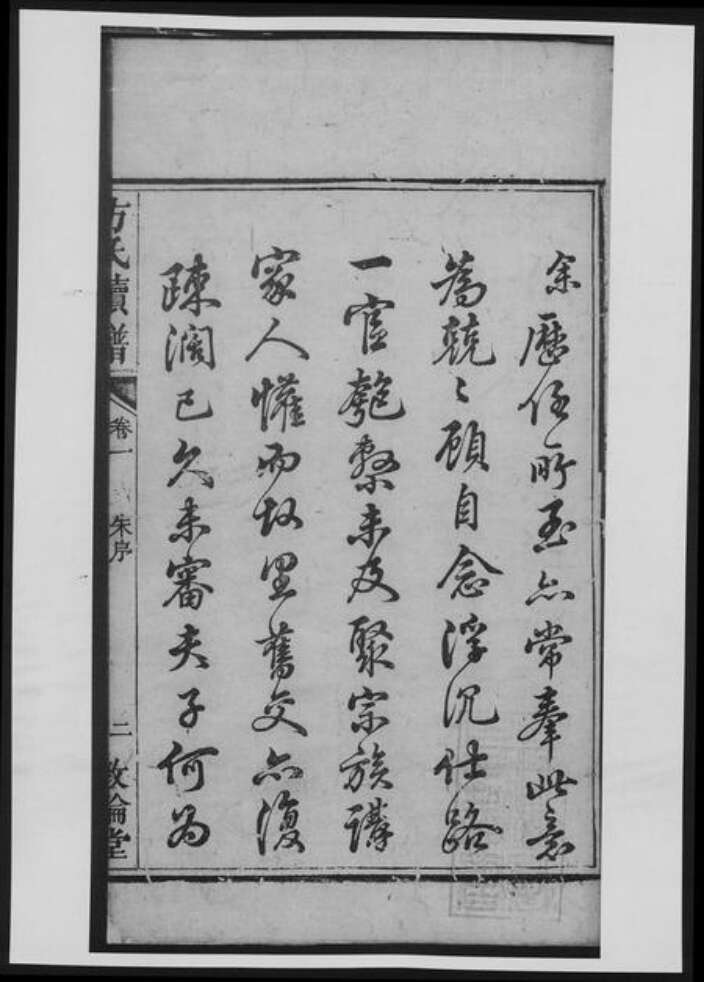 余歷任所至亦常奉此意
為兢〻顧自念浮沉仕路
一官匏繫未及聚宗族講
家人懽而故里舊交亦復
疎濶已久未審夫子何為
方氏續譜
卷一
朱序
二
敦倫堂